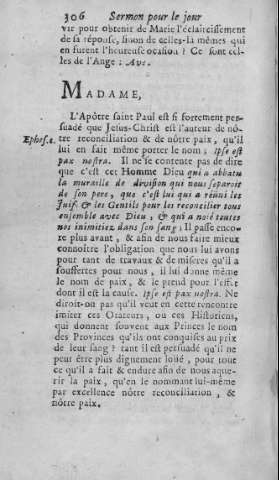 306 Sermon pour le jour
vir pour obtenir de Marie l'éclaircissement
de sa réponse, sinon de celles-là mêmes qui
en furent l'heureuse ocasion ? Ce sont cel-
les de l'Ange : Ave.
MADAME,
L'Apôtre saint Paul est si fortement per-
suadé que Jesus-Christ est l'auteur de nô-
Ephes.2. tre reconciliation & de nôtre paix, qu'il
lui en fait même porter le nom ; Ipse est
pax nostra. Il ne se contente pas de dire
que c'est cet Homme Dieu qui a abbatu
la muraille de division qui nous separoit
de son pere, que c'est lui qui a réuni les
Juifs & les Gentils pour les reconcilier tous
ensemble avec Dieu, & qui a noié toutes
nos inimitiez dans son sang ; Il passe enco-
re plus avant, & afin de nous faire mieux
connoître l'obligation que nous lui avons
pour tant de travaux & de miseres qu'il a
souffertes pour nous, il lui donne même
le nom de paix, & le prend pour l'effet
dont il est la cause. Ipse est pax nostra. Ne
diroit-on pas qu'il veut en cette rencontre
imiter ces Orateurs, ou ces Historiens,
qui donnent souvent aux Princes le nom
des Provinces qu'ils ont conquises au prix
de leur sang ? tant il est persuadé qu'il ne
peut être plus dignement loüé, pour tout
ce qu'il a fait & enduré afin de nous aque-
rir la paix, qu'en le nommant lui-même
par excellence nôtre reconciliation, &
nôtre paix.